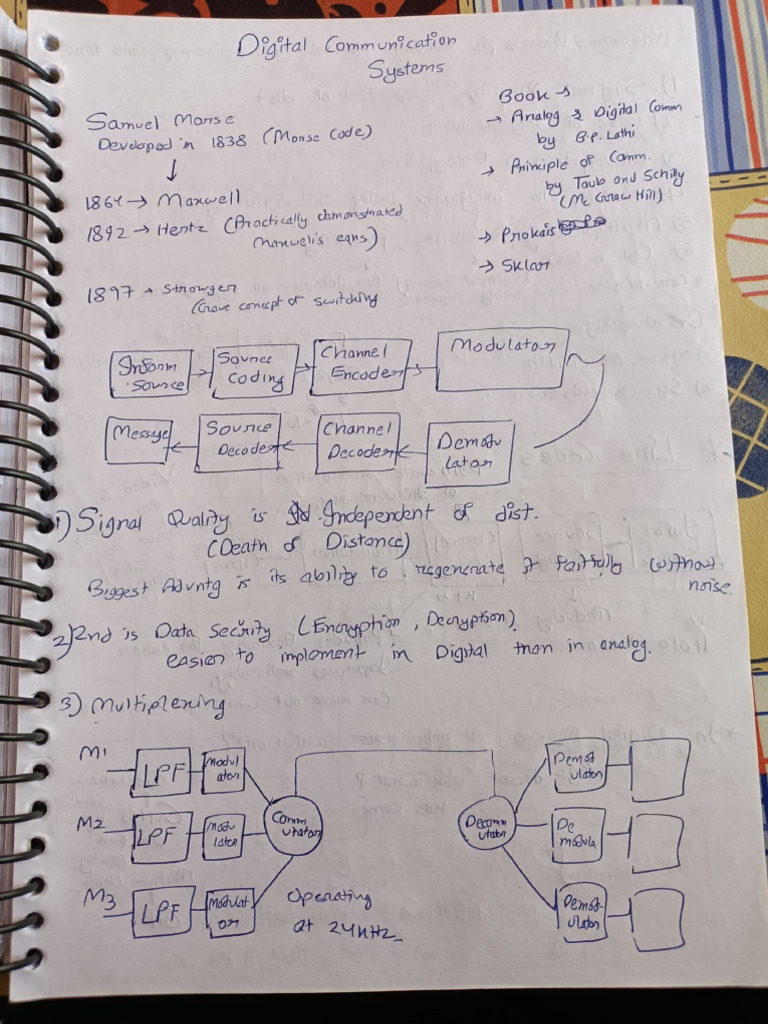 Digital Communication
Systems
Samuel Morse
Developed in 1838 (Morse Code)
↓
1864 → Maxwell
1892 → Hertz (Practically demonstrated
Maxwell's eqns)
1897 → Strowger
(Gave concept of switching
Book →
→ Analog & Digital Comm
by B.P. Lathi
→ Principle of Comm.
by Taub and Schilly
(Mc Graw Hill)
→ Prokais
→ Sklar
Inform
Source
Source
Coding
Channel
Encoder
Modulator
Message
Source
Decoder
Channel
Decoder
Demodu
lator
1) Signal Quality is Independent of dist.
(Death of Distance)
Biggest Advntg is its ability to regenerate it faithfully without
noise.
2) 2nd is Data Security (Encryption, Decryption)
easier to implement in Digital than in analog.
3) Multiplexing
M1 LPF Modul
ator
M2 LPF Modu
lator
M3 LPF Modulat
or
Comm
utator
Operating
at 24KHz
Decomm
utator
Demod
ulator
De
modula
Demod
ulator